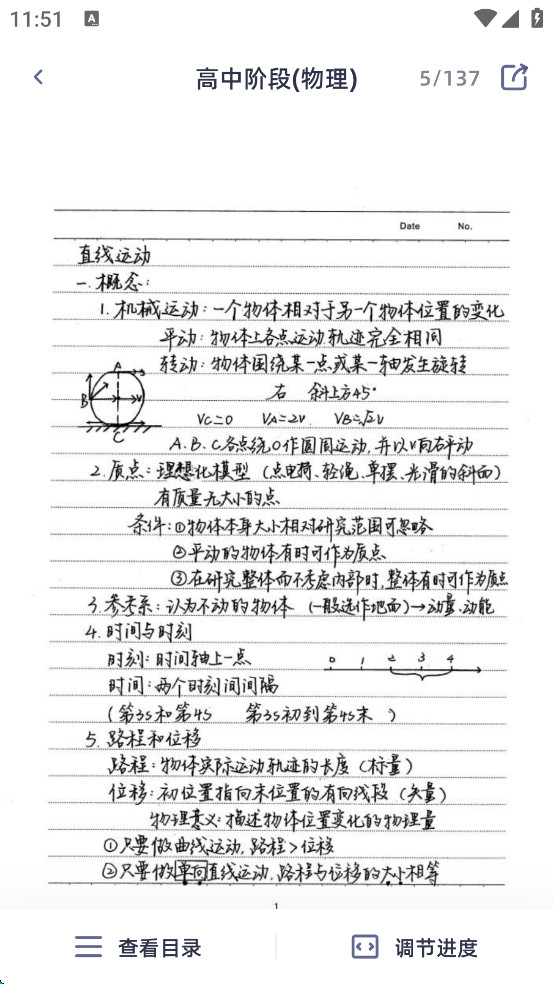 11:51 A
高中阶段(物理) 5/137
Date No.
直线运动
一.概念:
1. 机械运动:一个物体相对于另一个物体位置的变化
平动:物体上各点运动轨迹完全相同
转动:物体围绕某一点或某一轴发生旋转
A
B
V
C
右 斜上方45°
Vc=0 VA=2V VB=√2V
A.B.C各点绕O作圆周运动,并以V向右平动
2.质点:理想化模型 (点电荷、轻绳、单摆、光滑的斜面)
有质量无大小的点
条件:①物体本身大小相对研究范围可忽略
②平动的物体有时可作为质点
③在研究整体而不考虑内部时,整体有时可作为质点
3.参考系:认为不动的物体 (一般选作地面)→动量.动能
4.时间与时刻
时刻:时间轴上一点
0 1 2 3 4
时间:两个时刻间间隔
(第3s和第4s 第3s初到第4s末 )
5.路程和位移
路程:物体实际运动轨迹的长度(标量)
位移:初位置指向末位置的有向线段(矢量)
物理意义:描述物体位置变化的物理量
①只要做曲线运动,路程>位移
②只要做单向直线运动,路程与位移的大小相等
1
查看目录 调节进度